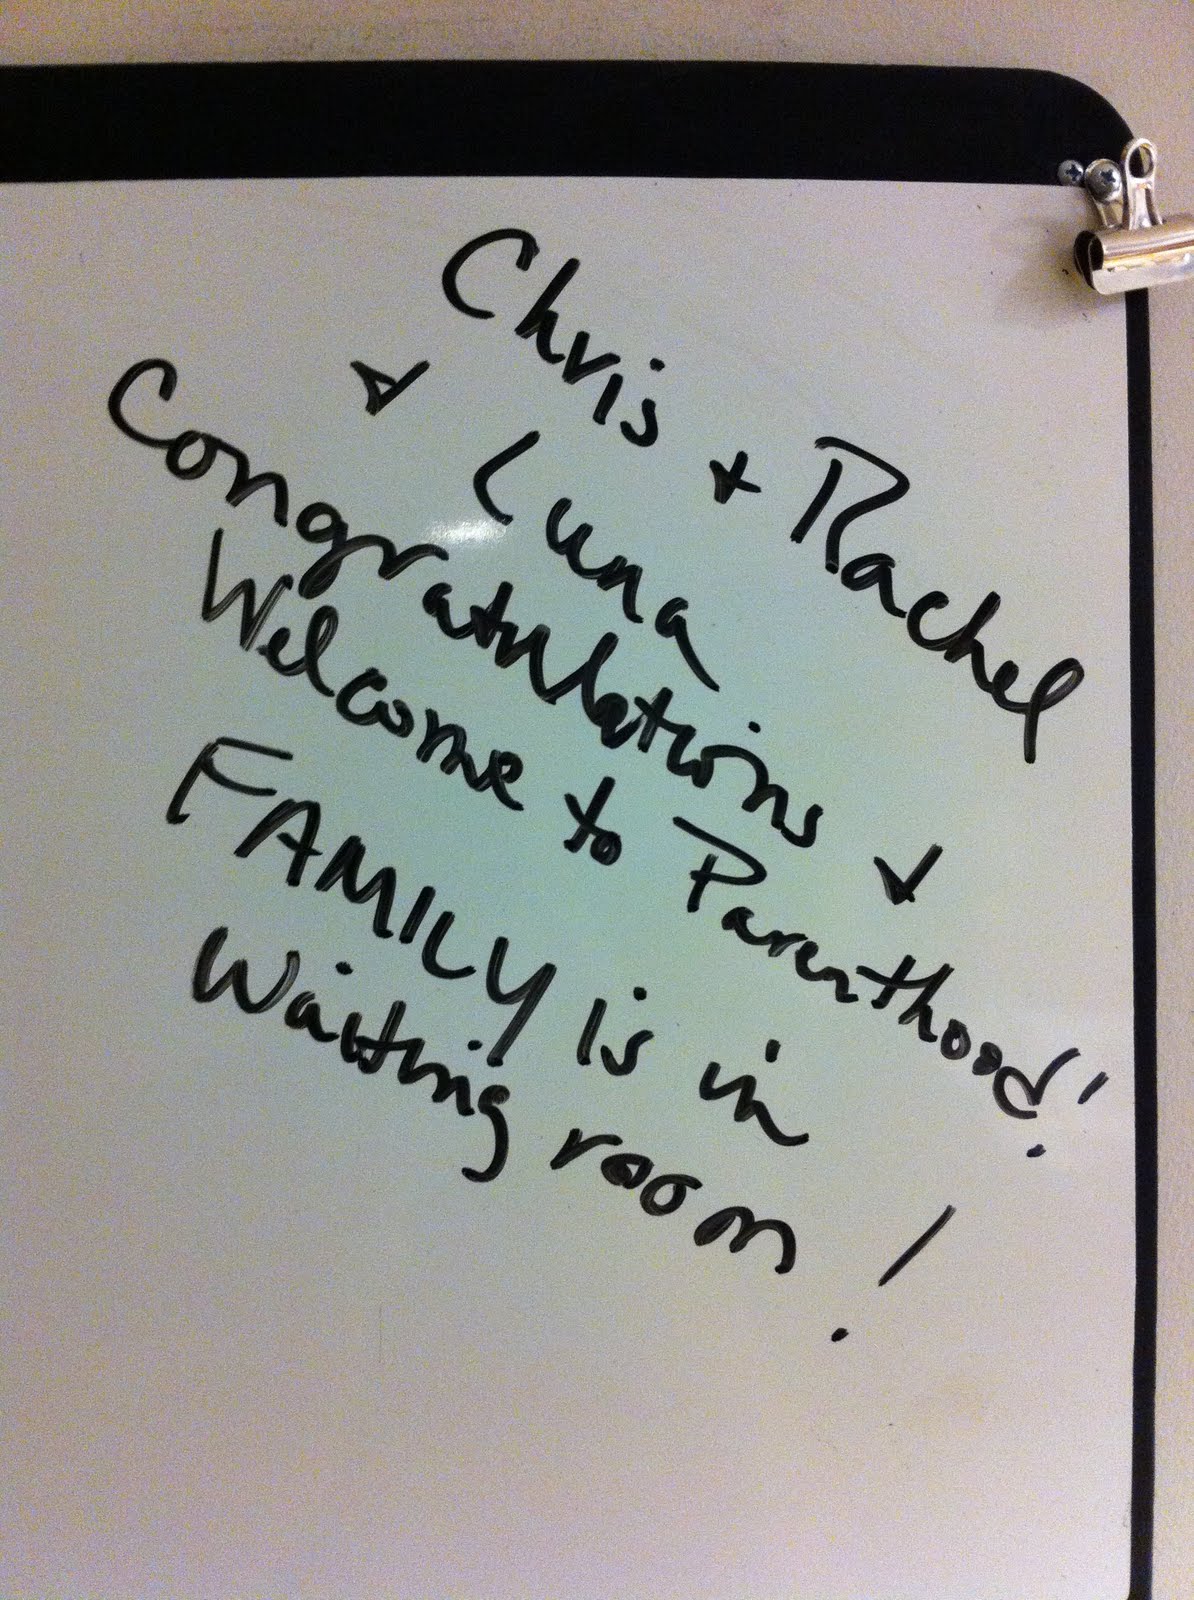 Chris + Rachel
+ Luna
Congratulations +
Welcome to Parenthood!
FAMILY is in
Waiting room!